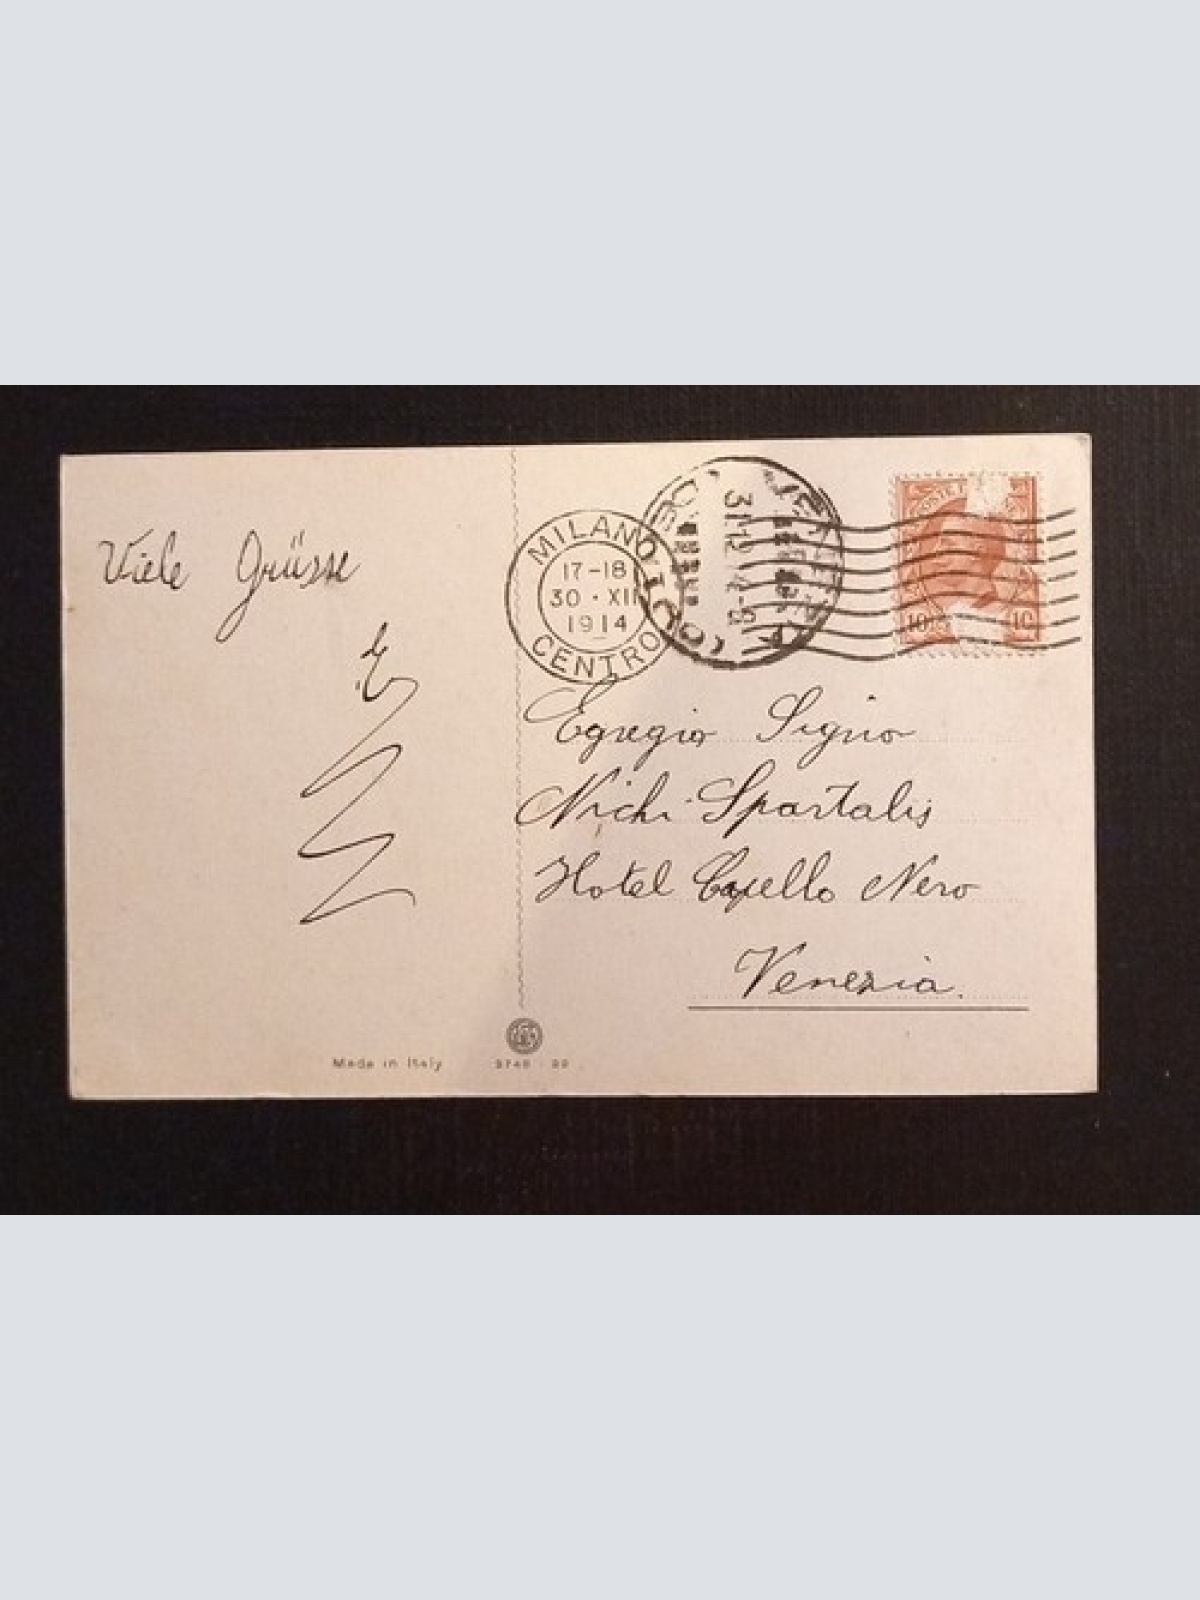 Viele Grüsse
MILANO
17-18
30 · XII
1914
CENTRO
VENEZIA
31.12
POSTE
10
10
Egregio Signo
Nichi Spartalis
Hotel Capello Nero
Venezia.
Made in Italy